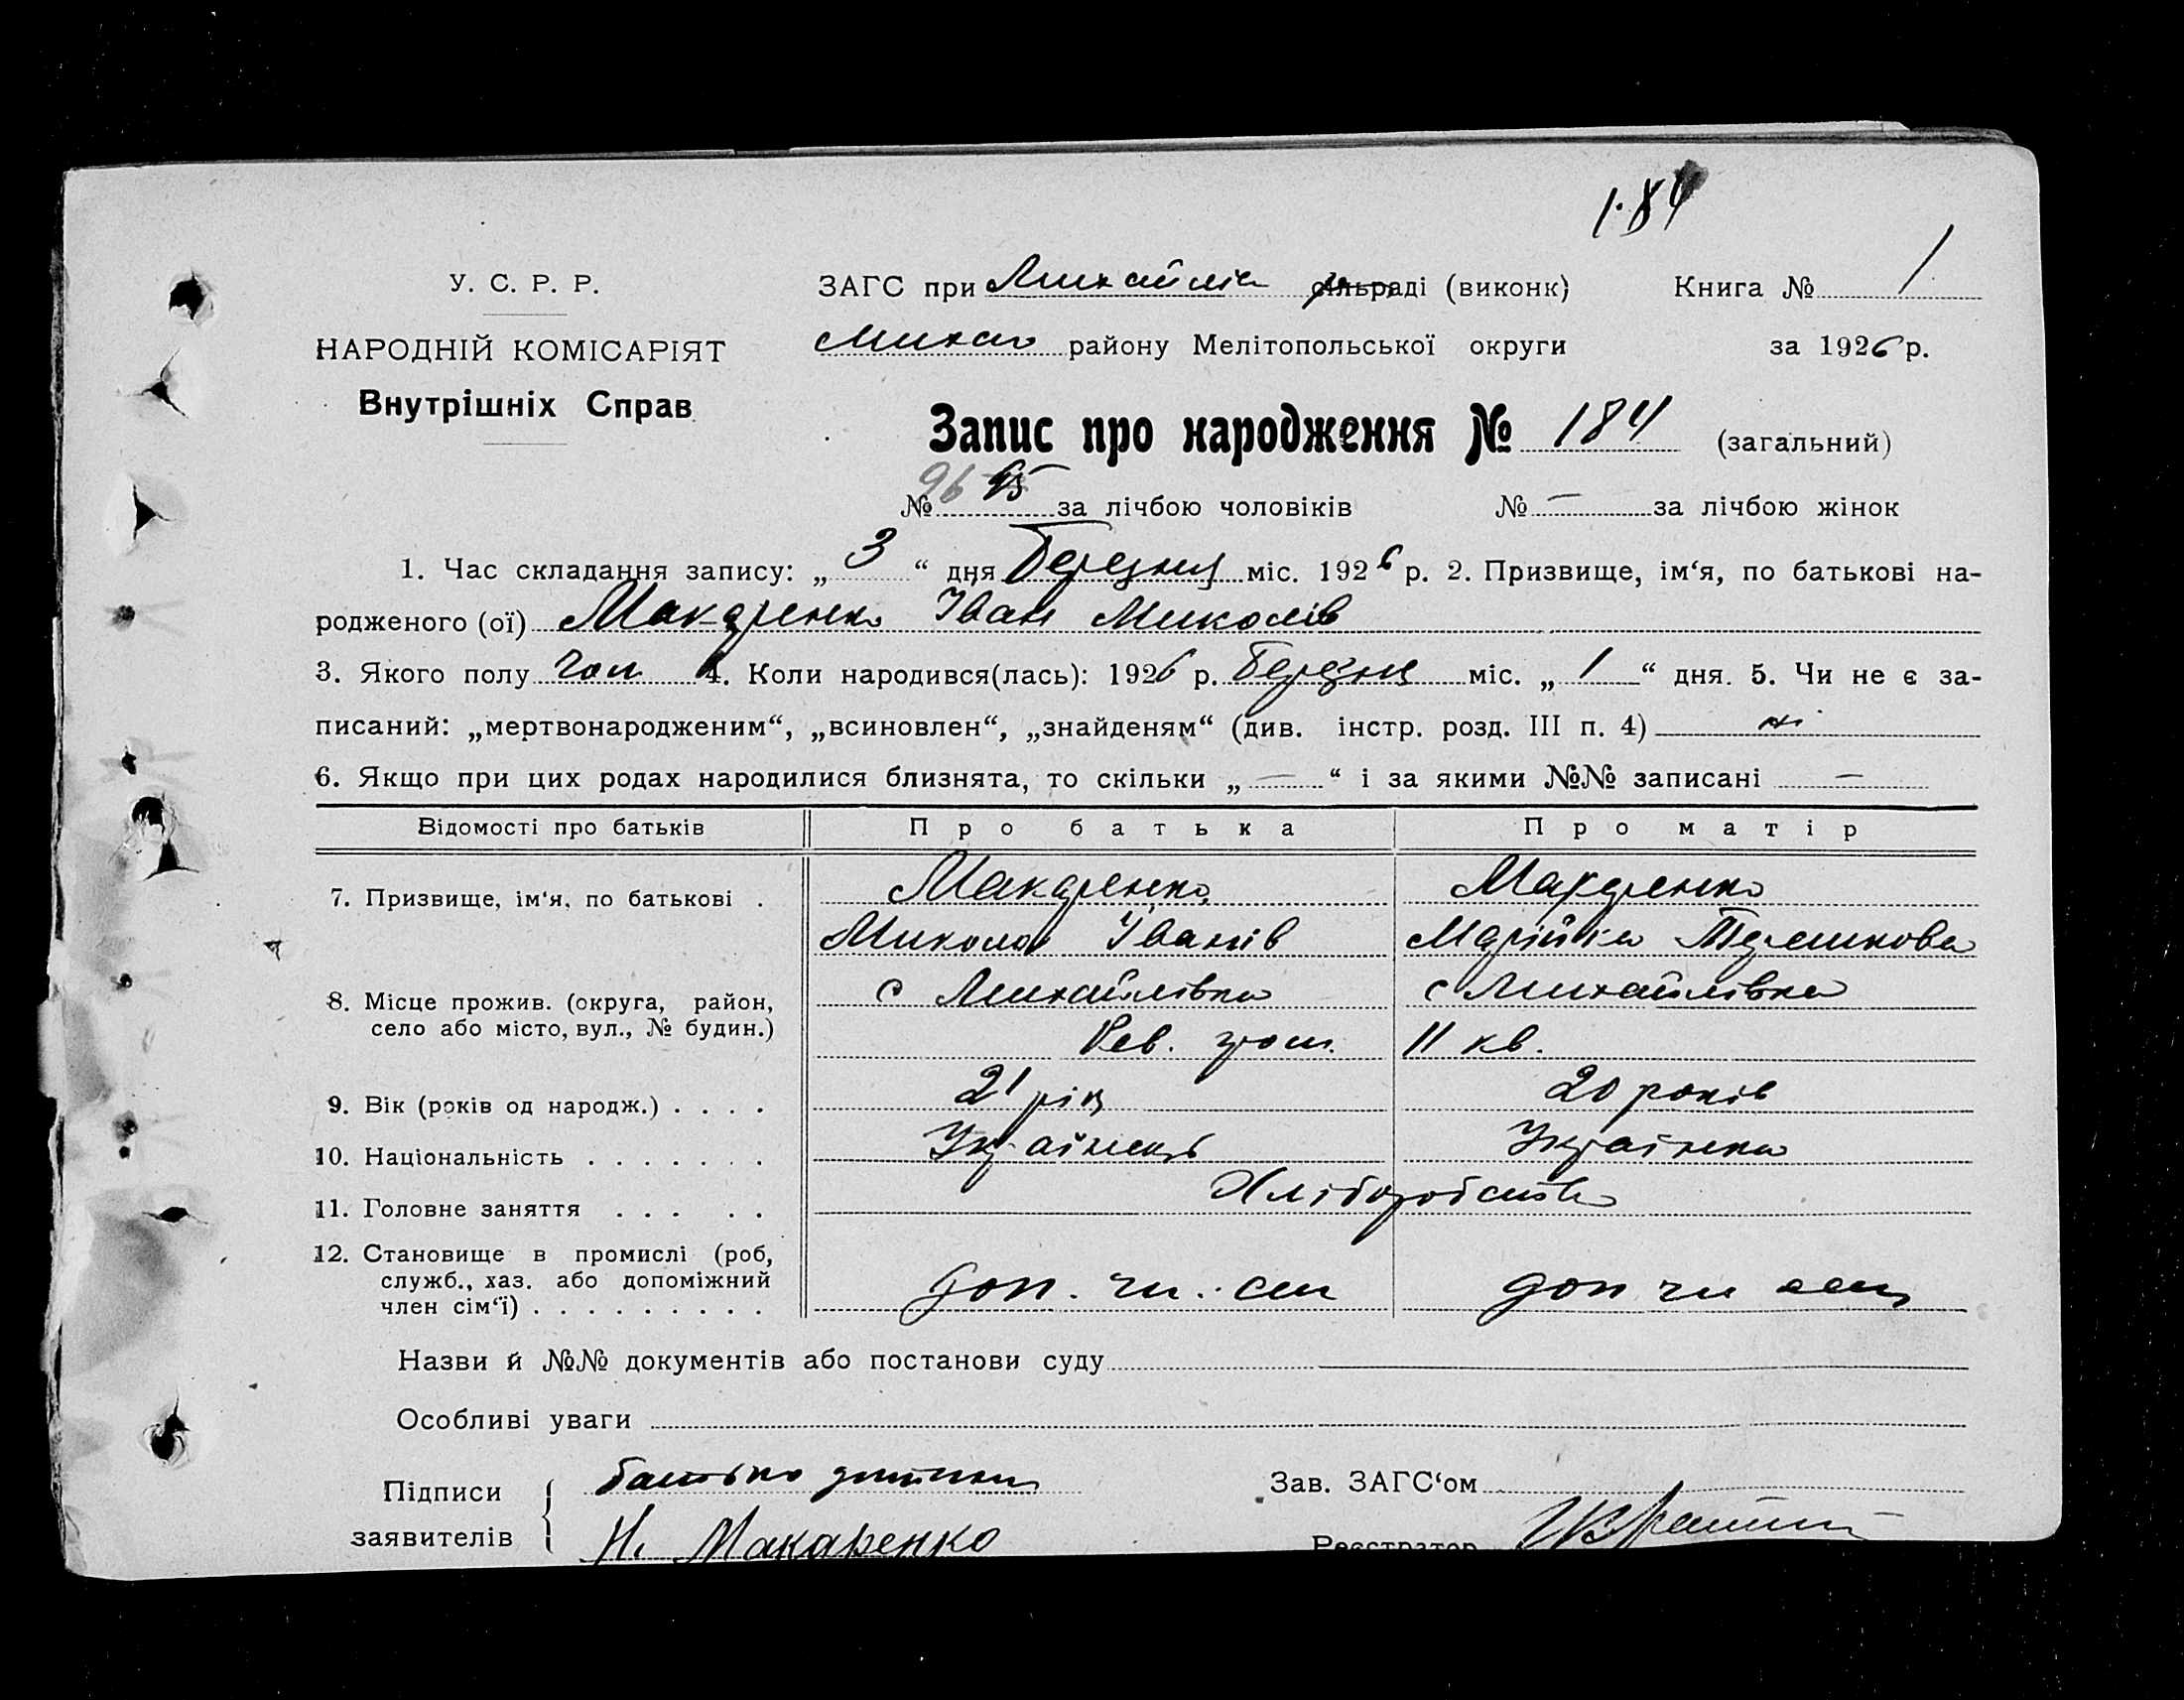 184
У. С. Р. Р.
ЗАГС при Михайлів сільраді (виконк)
Книга № 1
НАРОДНІЙ КОМІСАРІЯТ
Михай району Мелітопольської округи
за 1926 р.
Внутрішніх Справ
Запис про народження № 184 (загальний)
№ 96 95 за лічбою чоловіків № — за лічбою жінок
1. Час складання запису: „ 3 “ дня Березня міс. 1926 р. 2. Призвище, ім‘я, по батькові на-
родженого (ої) Макаренко Іван Миколів
3. Якого полу чол 4. Коли народився(лась): 1926 р. Березня міс. „ 1 “ дня. 5. Чи не є за-
писаний: „мертвонародженим“, „всиновлен“, „знайденям“ (див. інстр. розд. III п. 4) ні
6. Якщо при цих родах народилися близнята, то скільки „ — “ і за якими №№ записані —
Відомості про батьків Про батька Про матір
7. Призвище, ім‘я, по батькові . Макаренко Макаренко
Микола Іванів Марійка
8. Місце прожив. (округа, район, с Михайлівка с Михайлівка
село або місто, вул., № будин.) Рев. 11 кв.
9. Вік (років од народж.) . . . . 21 рік 20 років
10. Національність . . . . . . . Українець Українка
11. Головне заняття . . . . . Хліборобство
12. Становище в промислі (роб,
служб., хаз. або допоміжний доп. чл. сем доп чл сем
член сім‘ї) . . . . . . . . .
Назви й №№ документів або постанови суду
Особливі уваги
Підписи батько дитини Зав. ЗАГС‘ом
заявителів Н. Макаренко Реєстратор